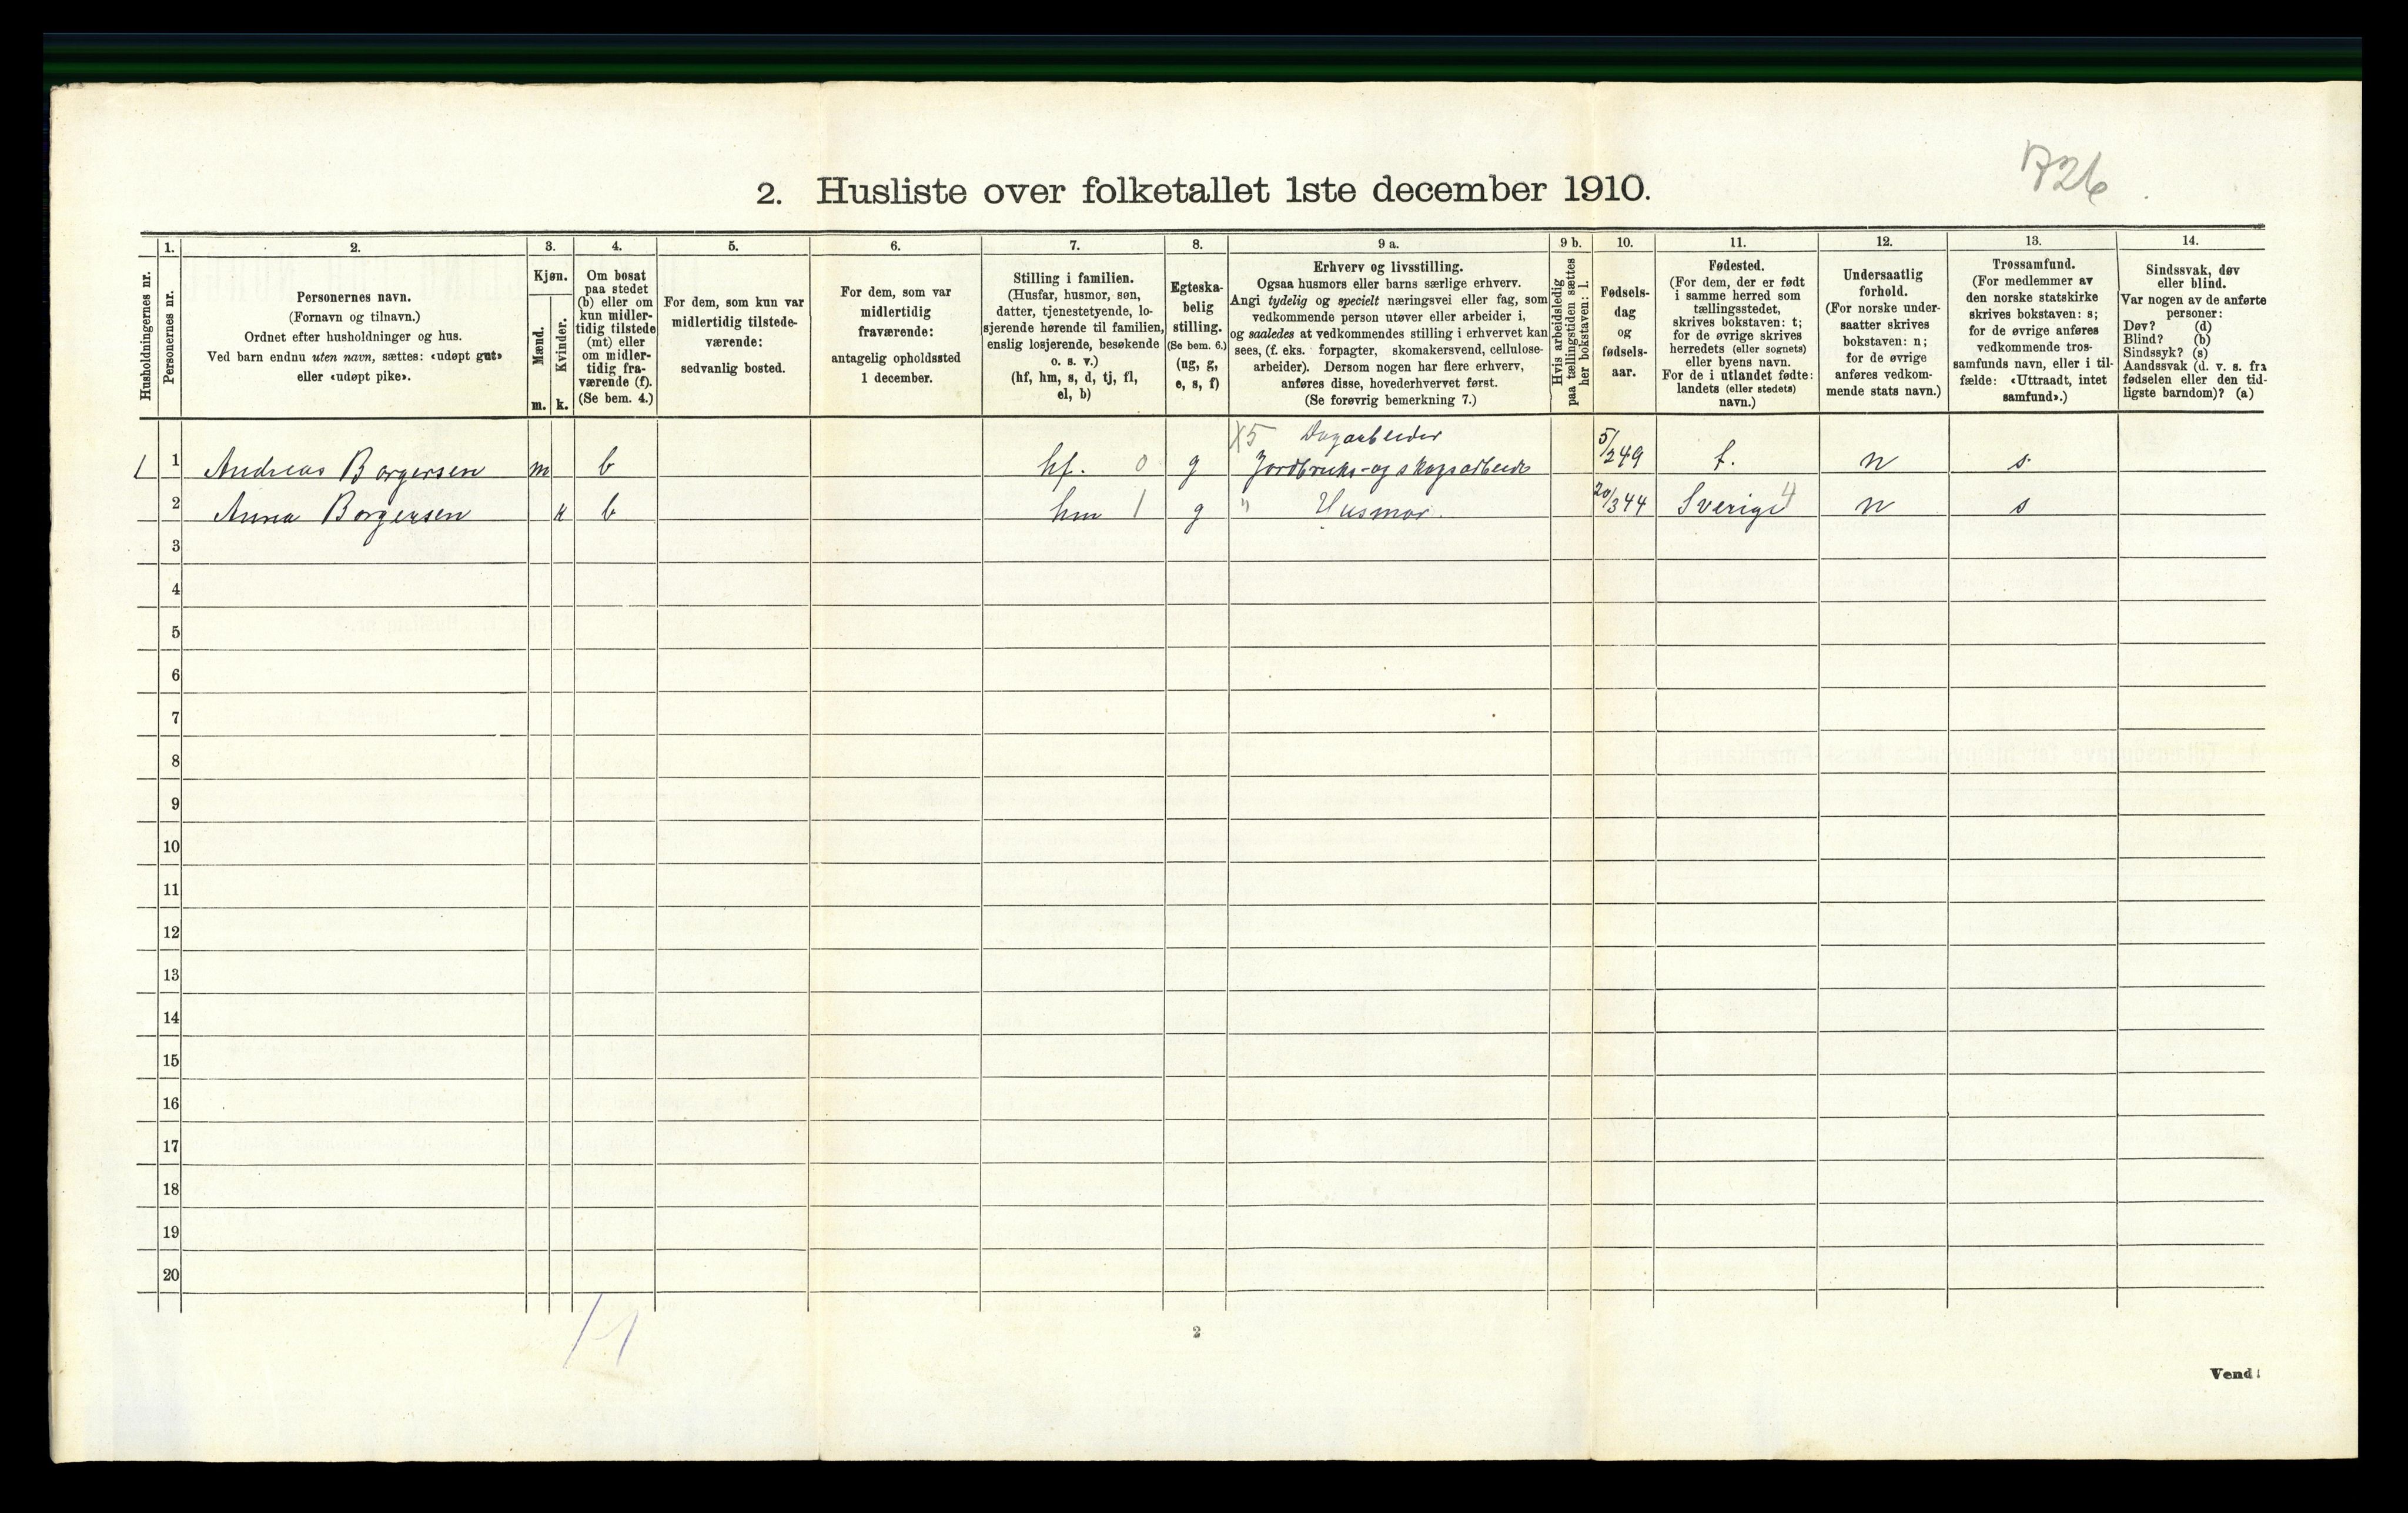 B26
2. Husliste over folketallet 1ste december 1910.
Husholdningernes nr.
1.
Personernes nr.
2.
Personernes navn.
(Fornavn og tilnavn.)
Ordnet efter husholdninger og hus.
Ved barn endnu uten navn, sættes: «udøpt gut»
eller «udøpt pike».
3.
Kjøn.
Mænd.
m.
Kvinder.
k.
4.
Om bosat
paa stedet
(b) eller om
kun midler-
tidig tilstede
(mt) eller
om midler-
tidig fra-
værende (f).
(Se bem. 4.)
5.
For dem, som kun var
midlertidig tilstede-
værende:
sedvanlig bosted.
6.
For dem, som var
midlertidig
fraværende:
antagelig opholdssted
1 december.
7.
Stilling i familien.
(Husfar, husmor, søn,
datter, tjenestetyende, lo-
sjerende hørende til familien,
enslig losjerende, besøkende
o. s. v.)
(hf, hm, s, d, tj, fl,
el, b)
8.
Egteska-
belig
stilling.
(Se bem. 6.)
(ug, g,
e, s, f)
9 a.
Erhverv og livsstilling.
Ogsaa husmors eller barns særlige erhverv.
Angi tydelig og specielt næringsvei eller fag, som
vedkommende person utøver eller arbeider i,
og saaledes at vedkommendes stilling i erhvervet kan
sees, (f. eks. forpagter, skomakersvend, cellulose-
arbeider). Dersom nogen har flere erhverv,
anføres disse, hovederhvervet først.
(Se forøvrig bemerkning 7.)
9 b.
Hvis arbeidsledig
paa tællingstiden sættes
her bokstaven: l.
10.
Fødsels-
dag
og
fødsels-
aar.
11.
Fødested.
(For dem, der er født
i samme herred som
tællingsstedet,
skrives bokstaven: t;
for de øvrige skrives
herredets (eller sognets)
eller byens navn.
For de i utlandet fødte:
landets (eller stedets)
navn.)
12.
Undersaatlig
forhold.
(For norske under-
saatter skrives
bokstaven: n;
for de øvrige
anføres vedkom-
mende stats navn.)
13.
Trossamfund.
(For medlemmer av
den norske statskirke
skrives bokstaven: s;
for de øvrige anføres
vedkommende tros-
samfunds navn, eller i til-
fælde: «Uttraadt, intet
samfund».)
14.
Sindssvak, døv
eller blind.
Var nogen av de anførte
personer:
Døv? (d)
Blind? (b)
Sindssyk? (s)
Aandssvak (d. v. s. fra
fødselen eller den tid-
ligste barndom)? (a)
X5 Dagarbeider
1 1 Andreas Borgersen m b hf. 0 g Jordbruks- og skogsarbeide 5/2 49 t. n s
2 Anna Borgersen k b hm 1 g " Husmor. 20/3 44 Sverige 4 n s
3
4
5
6
7
8
9
10
11
12
13
14
15
16
17
18
19
20
1-1
2
Vend!